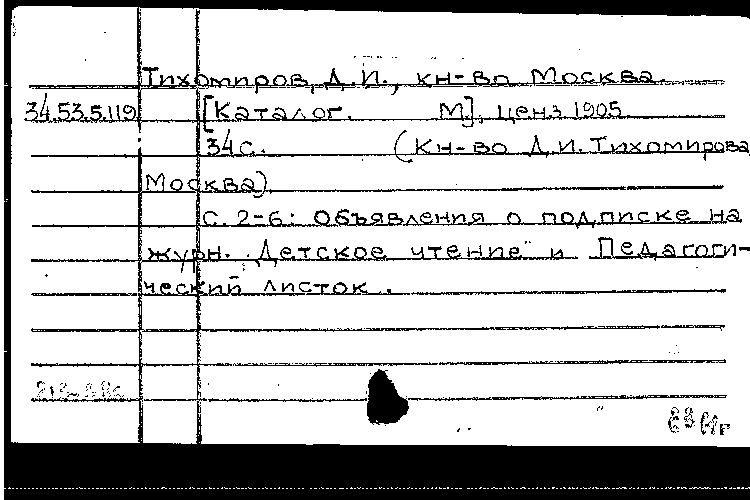 Тихомиров, Д.И., кн-во Москва.
34.53.5.119 [Каталог. М], ценз 1905
34 с. (Кн-во Д.И. Тихомирова
Москва)
С. 2-6: Объявления о подписке на
журн. „Детское чтение" и Педагоги-
ческий листок.